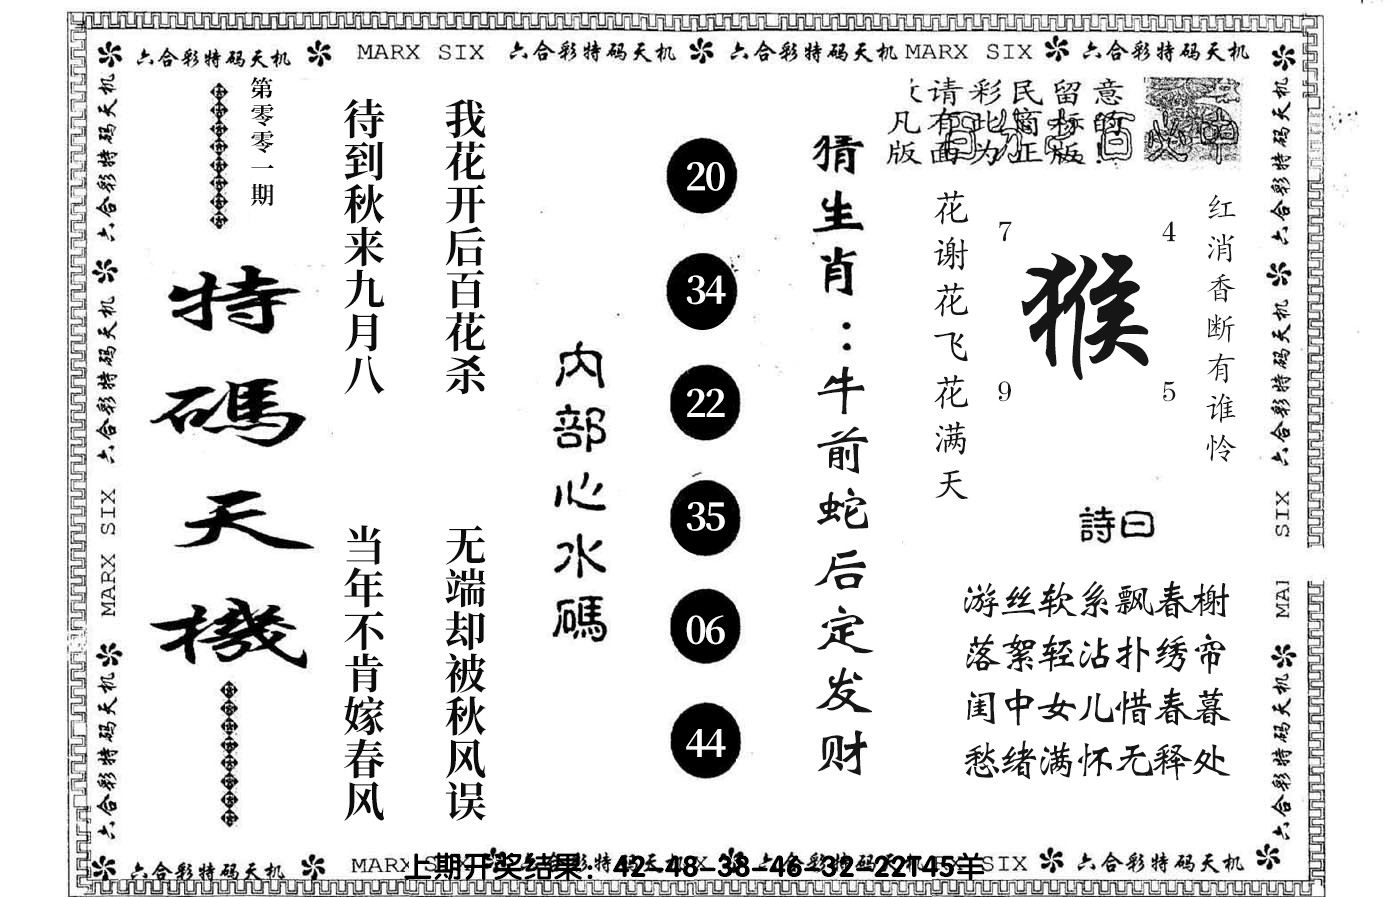 六合彩特码天机 MARX SIX 六合彩特码天机 六合彩特码天机 MARX SIX 六合彩特码天机
请彩民留意
凡有此商标的
版面为正版!
红消香断有谁怜
7
4
猴
9
5
花谢花飞花满天
詩曰
游丝软系飘春榭
落絮轻沾扑绣帘
闺中女儿惜春暮
愁绪满怀无释处
猜生肖：牛前蛇后定发财
20
34
22
35
06
44
内部心水碼
我花开后百花杀
无端却被秋风误
待到秋来九月八
当年不肯嫁春风
第零零一期
特碼天機
六合彩特码天机 六合彩特码天机 MARX SIX 六合彩特码天机
六合彩特码天机 六合彩特码天机 SIX 六合彩特码天机
六合彩特码天机 MARX SIX 六合彩特码天机
上期开奖结果：42-48-38-46-32-22T45羊